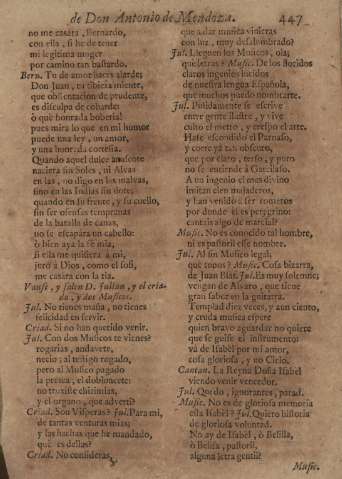 de Don Antonio de Mendoza. 447
no me casára, Bernardo,
con ella, si he de tener
mi legitima muger
por camino tan bastardo.
Bern. Tu de amor haces alarde;
Don Juan, es tibieza miente,
que obstentacion de prudente,
es disculpa de cobarde:
ò què honrada boberia!
pues mira lo que en mi humor
puede una ley, un amor,
y una honrada cortesia.
Quando aquel dulce
naciera sin Soles, ni Alvas
en las, no digo en las malvas,
sino en las Indias sin dote;
quando en su frente, y su cuello,
sin ser ofensas tempranas
de la batalla de canas,
no se escapára un cabello:
ò bien aya la fé mia,
si ella me quisiera à mi,
juro à Dios, como el sofi,
me casára con la tia.
Vanse, y salen D. Julian, y el cria-
do, y dos Musicos.
Jul. No tienes masia, no tienes
felicidad en servir.
Criad. Si no han querido venir.
Jul. Con dos Musicos te vienes?
rogarias, andavete,
necio; al testigo rogado,
pero al Musico pagado
la prenda, el dobloncete:
no truxiste chirimias,
y el organo, que advertí?
Criad. Son Visperas? Jul. Para mi,
de tantas venturas mias;
y las hachas que he mandado,
què es dellas?
Criad. No consideras,
que a dar musica vinieras
con luz, muy desalumbrado?
Jul. Lleguen los Musicos, ola;
què letras? Music. De los floridos
claros ingenios lucidos
de nuestra lengua Española,
què muchos puedo nombrarte.
Jul. Pulidamente se escrive
entre gente ilustre, y vive
culto el metro, y crespo el arte.
Hase escondido el Parnaso,
y corre yà tan obscuro,
que por claro, terso, y puro
no se entiende à Garcilaso.
A un ingenio el mes divino
imitan cien majaderos,
y han venido à ser romeros
por donde èl es peregrino:
cantais algo de marcial?
Music. No es conocido tal hombre,
ni es pastoril esse nombre.
Jul. Al sin Musico legal;
què topas? Music. Cosa bizarra,
de Juan Blas. Jul. Es muy solemne;
vengan de Alvaro, que tiene
gran sabor en la guitarra.
Templad diez veces, y aun ciento,
y cruda musica espere
quien bravo aguardar no quiere
que se guise el instrumento:
và de Isabèl por mi amor,
cosa gloriosa, y no Cirio.
Cantan. La Reyna Doña Isabel
viendo venir vencedor.
Jul. Quedo, ignorantes, parad.
Music. No es de gloriosa memoria
esta Isabèl? Jul. Quiero historia
de gloriosa voluntad.
No ay de Isabèl, ò Belilla,
ò Belisa, pastoril,
alguna letra gentil?
Music.